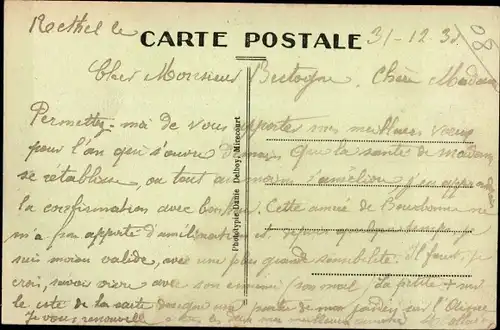 Rethel le 31-12-3
80
CARTE POSTALE
Cher Monsieur Bretogne, Chère Madame
Permettez-moi de vous apporter mes meilleurs vœux
pour l'an qui s'ouvre demain. Que la santé de madame
se rétablisse, ou tout au moins s'améliore j'en
la confirmation avec bonheur. Cette année de Bourbonne ne
m'a pas apporté d'amélioration et depuis quelque temps je
suis moins valide, avec une plus grande sensibilité. Il faut, je
crois, savoir vivre avec son ennemi (son mal). La petite
le reste de la carte partie de mon jardin sur l'Aisne
Je vous renouvelle à tous les deux mes meilleurs
Phototypie Daniel Delboy, Mirecourt